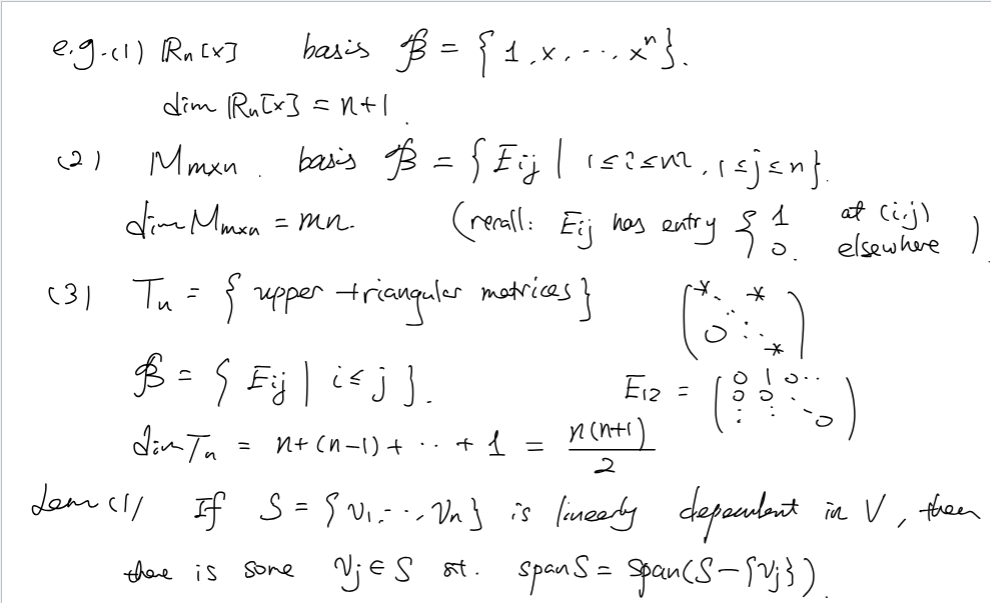 e.g.(1) ℝn[x] basis 𝓑 = { 1, x, ..., xⁿ }.
dim ℝn[x] = n+1.
(2) Mm×n. basis 𝓑 = { Eij | 1≤i≤m, 1≤j≤n }.
dim Mm×n = mn. (recall: Eij has entry { 1 at (i,j) 0. elsewhere ).
(3) Tn = { upper triangular matrices } ( * ⋱ * 0 ⋱ * )
𝓑 = { Eij | i ≤ j }. E12 = ( 0 1 0 ·· 0 0 · : : ⋱ 0 )
dim Tn = n+(n-1)+ ··· + 1 = n(n+1)/2
Lem (1) If S = { v1, ..., vn } is linearly dependent in V, then
there is some vj ∈ S st. span S = span(S-{vj}).